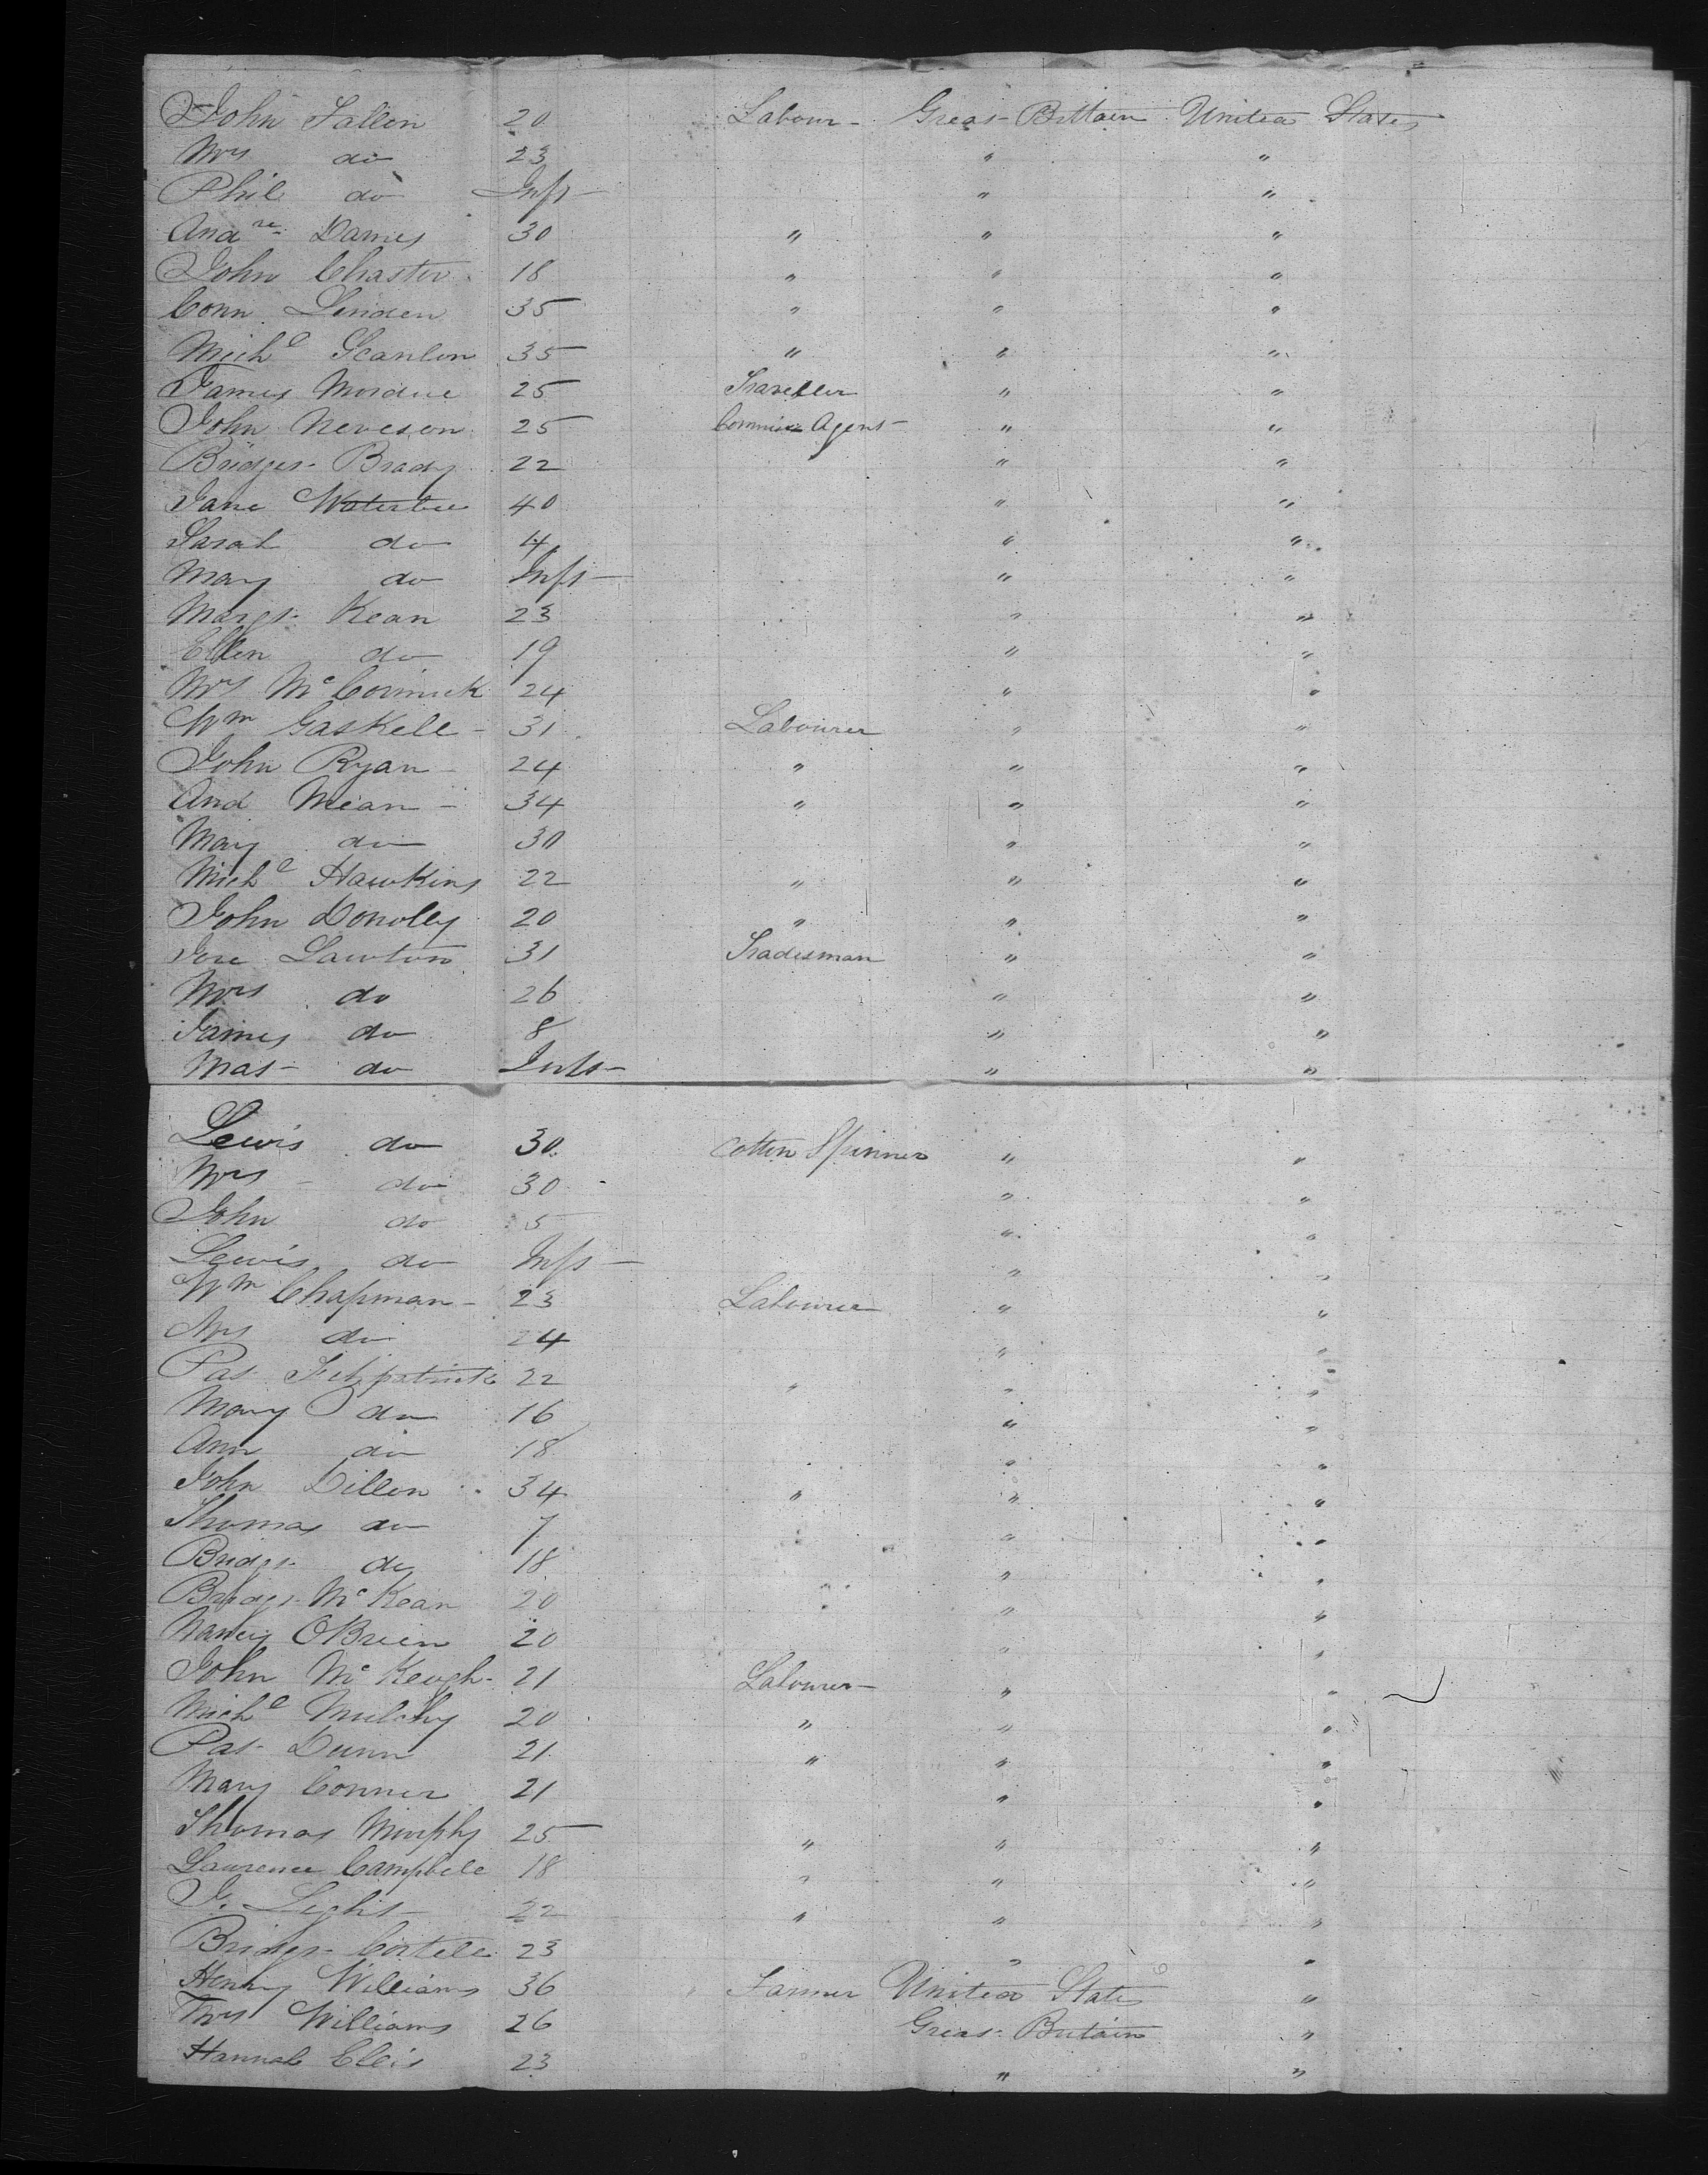 John Fallon 20 Labour - Great Brittain United States
Mrs do 23 " "
Phil do Inft " "
Andre Dames 30 " " "
John Chaster 18 " " "
Conn Linden 35 " " "
Michl Scanlon 35 " " "
James Mordue 25 Traveller " "
John Neveson 25 Agent " "
Bridget Brady 22 " "
Jane 40 " "
Sarah do 4 " "
Mary do Inft " "
Margt Kean 23 " "
Ellen do 19 " "
Mrs McCormick 24 " "
Wm Gaskell 31 Labourer " "
John Ryan 24 " " "
And Mean 34 " " "
Mary do 30 " "
Michl Hawkins 22 " " "
John Donolly 20 " " "
Lawton 31 Tradesman " "
Mrs do 26 " "
James do 8 " "
Mas do Infts " "
Lewis do 30 Cotton Spinner " "
Mrs - do 30 " "
John do 5 " "
Lewis do Inft " "
Wm Chapman 23 Labourer " "
Mrs do 24 " "
Pat Fitzpatrick 22 " " "
Mary do 16 " "
Ann do 18 " "
John Dillon 34 " " "
Thomas do 7 " "
Bridgt do 18 " "
Bridgt McKean 20 " "
Nancy OBrien 20 " "
John McKeogh 21 Labourer " "
Michl Mulchy 20 " " "
Pat Dunn 21 " " "
Mary Conner 21 " "
Thomas Murphy 25 " " "
Laurence Campbell 18 " " "
J. Light 22 " " "
Bridget Costele 23 " "
Henry Williams 36 Farmer United States "
Mrs Williams 26 Great Britain "
Hannah 23 " "